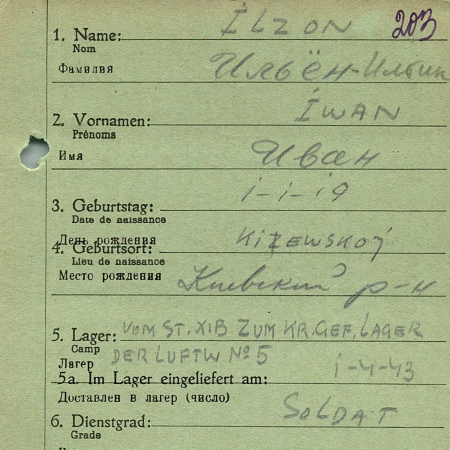 ILZON 203
1. Name:
Nom
Фамилия Ильён-Илбин
IWAN
2. Vornamen:
Prénoms
Имя Иван
1-1-19
3. Geburtstag:
Date de naissance
День рождения KIZEWSKOJ
4. Geburtsort:
Lieu de naissance
Место рождения Киевский р-н
5. Lager: VOM ST. XIB ZUM KR. GEF. LAGER
Camp
Лагер DER LUFTW № 5 1-4-43
5a. Im Lager eingeliefert am:
Доставлен в лагер (число)
SOLDAT
6. Dienstgrad:
Grade